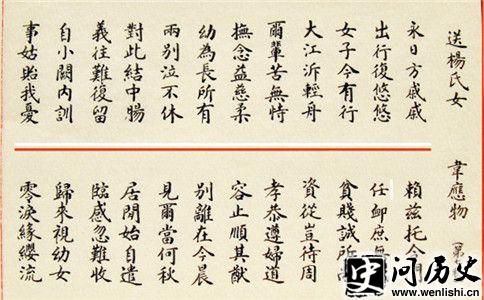 送楊氏女
永日方戚戚
出行復悠悠
女子今有行
大江泝輕舟
爾輩苦無恃
撫念益慈柔
幼為長所育
兩別泣不休
對此結中腸
義往難復留
自小闕內訓
事姑貽我憂
韋應物
賴茲托令門
任卹庶無
貧賤誠所
資從豈待周
孝恭遵婦道
容止順其猷
別離在今晨
見爾當何秋
居閒始自遣
臨感忽難收
歸來視幼女
零淚緣纓流
史 问历史
www.wenlishi.cn